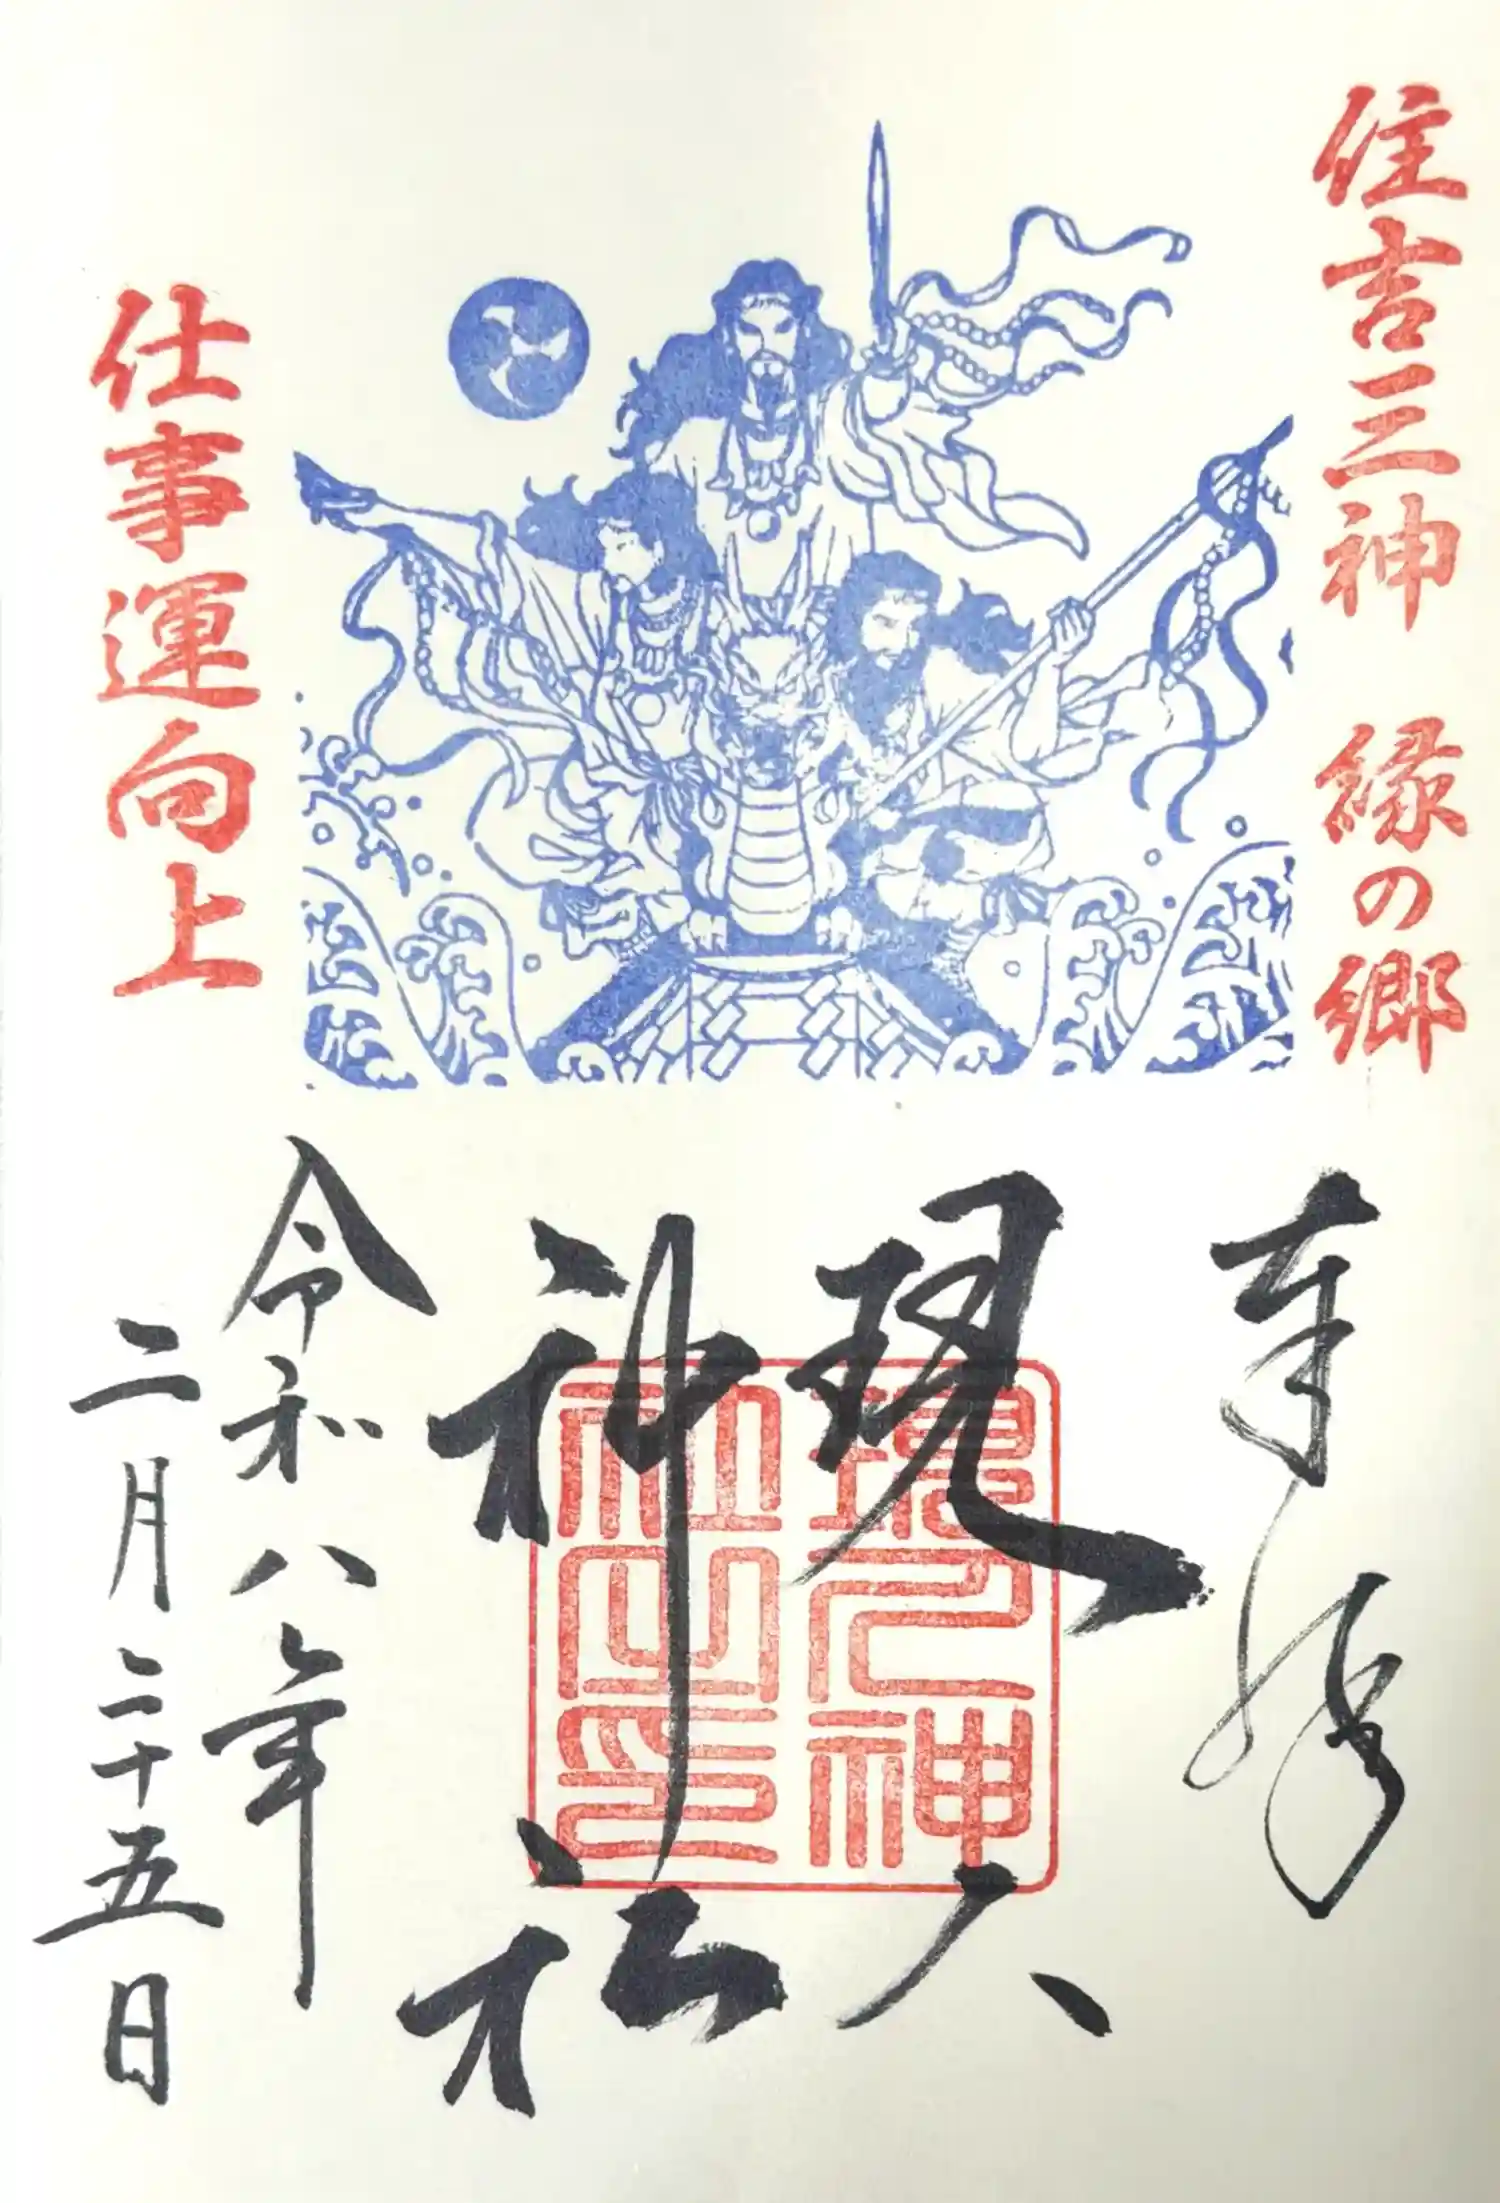 住吉三神 縁の郷
仕事運向上
奉拝
現人
神社
現人神
社之印
令和八年
二月二十五日